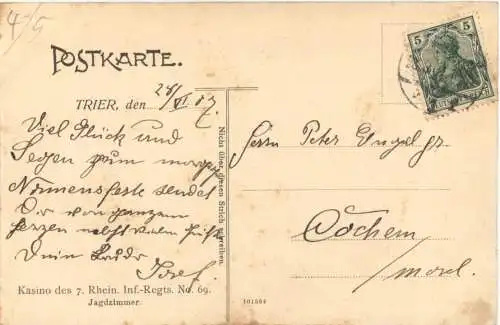 4-5
POSTKARTE.
TRIER, den 28/VI 07.
Viel Glück und
Segen zum
Namensfeste sendet
Dir von ganzem
Herzen nebst vielen
Dein Bruder
Josef.
Kasino des 7. Rhein. Inf.-Regts. No. 69.
Jagdzimmer.
Nicht über diesen Strich schreiben.
5 5
Herrn Peter
Cochem
Mosel.
101564